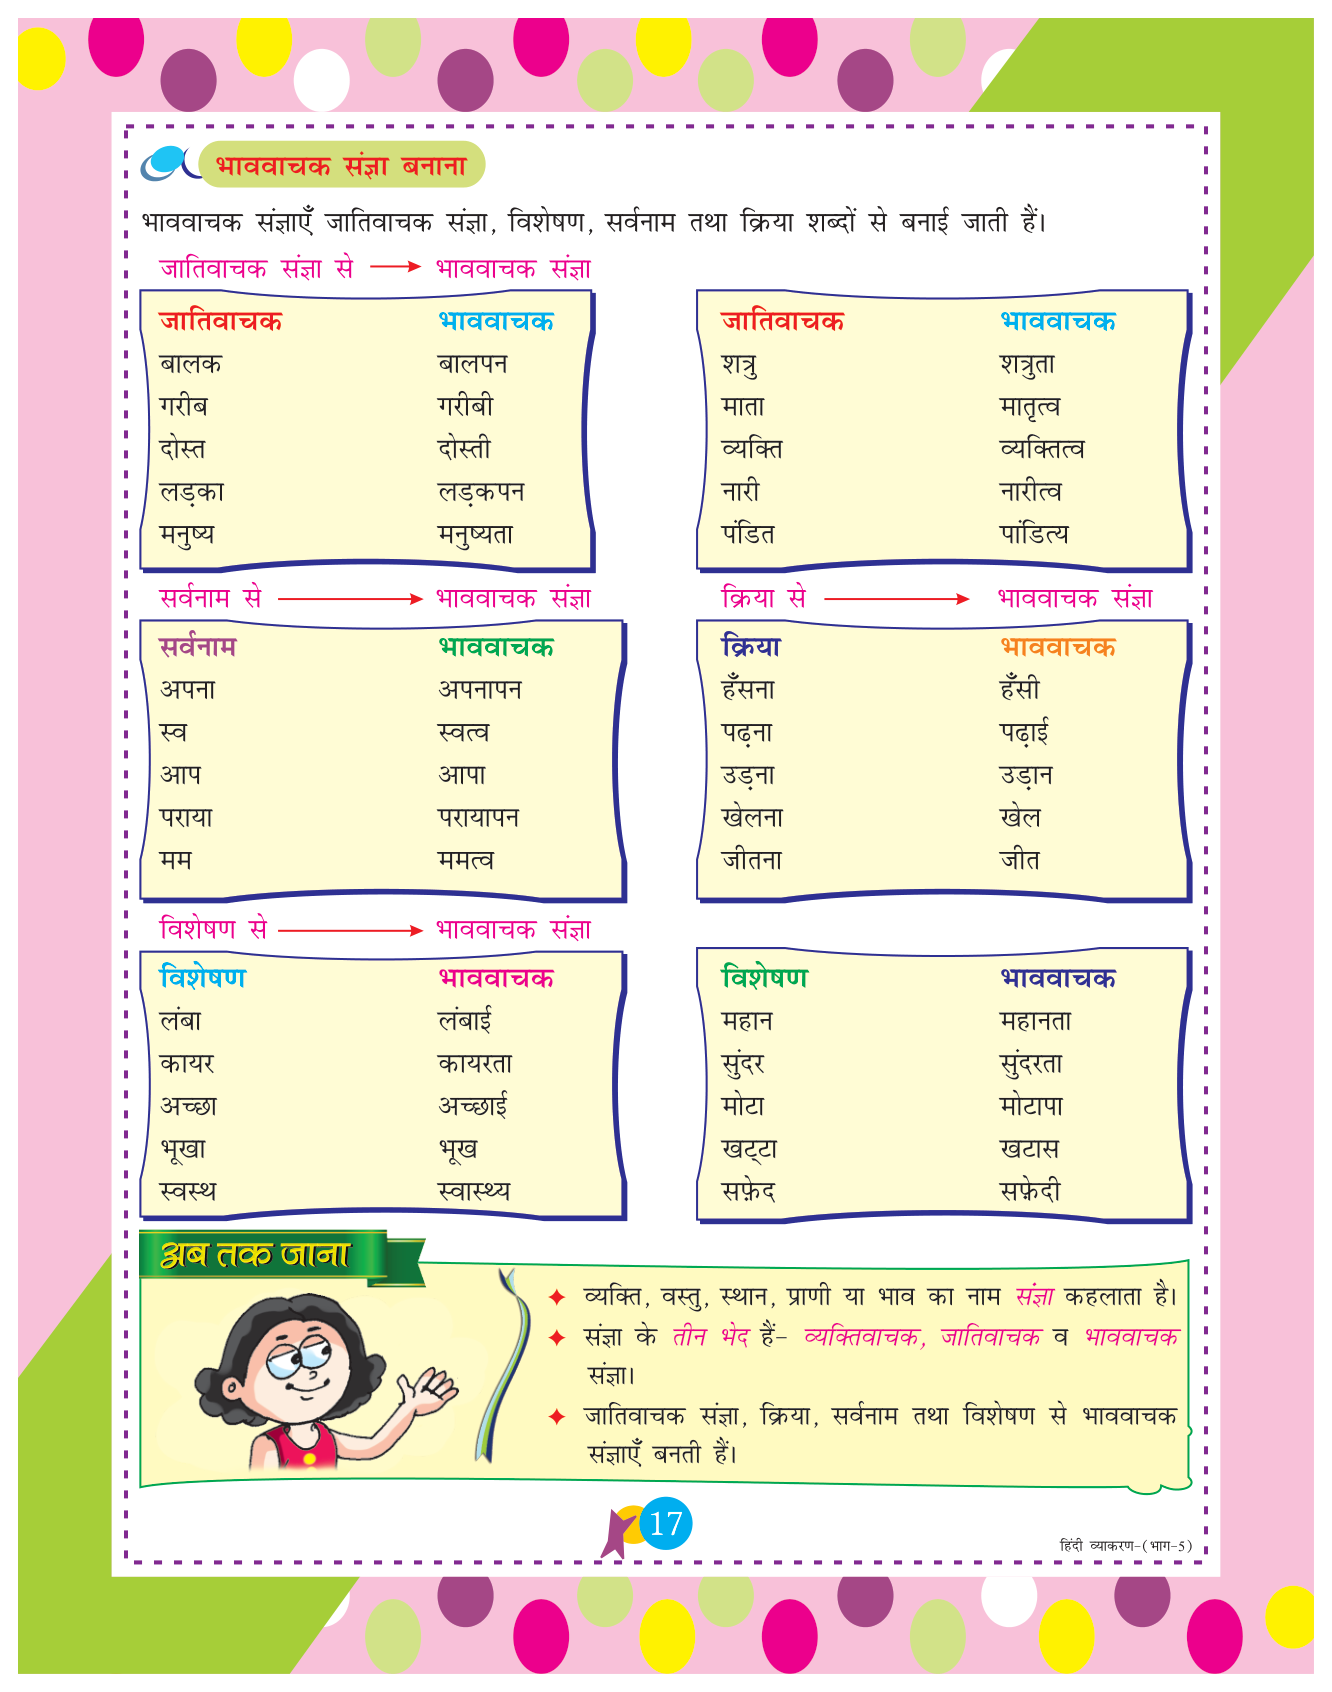 भाववाचक संज्ञा बनाना
भाववाचक संज्ञाएँ जातिवाचक संज्ञा, विशेषण, सर्वनाम तथा क्रिया शब्दों से बनाई जाती हैं।
जातिवाचक संज्ञा से भाववाचक संज्ञा
जातिवाचक भाववाचक
बालक बालपन
गरीब गरीबी
दोस्त दोस्ती
लड़का लड़कपन
मनुष्य मनुष्यता
जातिवाचक भाववाचक
शत्रु शत्रुता
माता मातृत्व
व्यक्ति व्यक्तित्व
नारी नारीत्व
पंडित पांडित्य
सर्वनाम से भाववाचक संज्ञा
सर्वनाम भाववाचक
अपना अपनापन
स्व स्वत्व
आप आपा
पराया परायापन
मम ममत्व
क्रिया से भाववाचक संज्ञा
क्रिया भाववाचक
हँसना हँसी
पढ़ना पढ़ाई
उड़ना उड़ान
खेलना खेल
जीतना जीत
विशेषण से भाववाचक संज्ञा
विशेषण भाववाचक
लंबा लंबाई
कायर कायरता
अच्छा अच्छाई
भूखा भूख
स्वस्थ स्वास्थ्य
विशेषण भाववाचक
महान महानता
सुंदर सुंदरता
मोटा मोटापा
खट्‌टा खटास
सफ़ेद सफ़ेदी
अब तक जाना
व्यक्ति, वस्तु, स्थान, प्राणी या भाव का नाम संज्ञा कहलाता है।
संज्ञा के तीन भेद हैं– व्यक्तिवाचक, जातिवाचक व भाववाचक
संज्ञा।
जातिवाचक संज्ञा, क्रिया, सर्वनाम तथा विशेषण से भाववाचक
संज्ञाएँ बनती हैं।
17
हिंदी व्याकरण–(भाग–5)